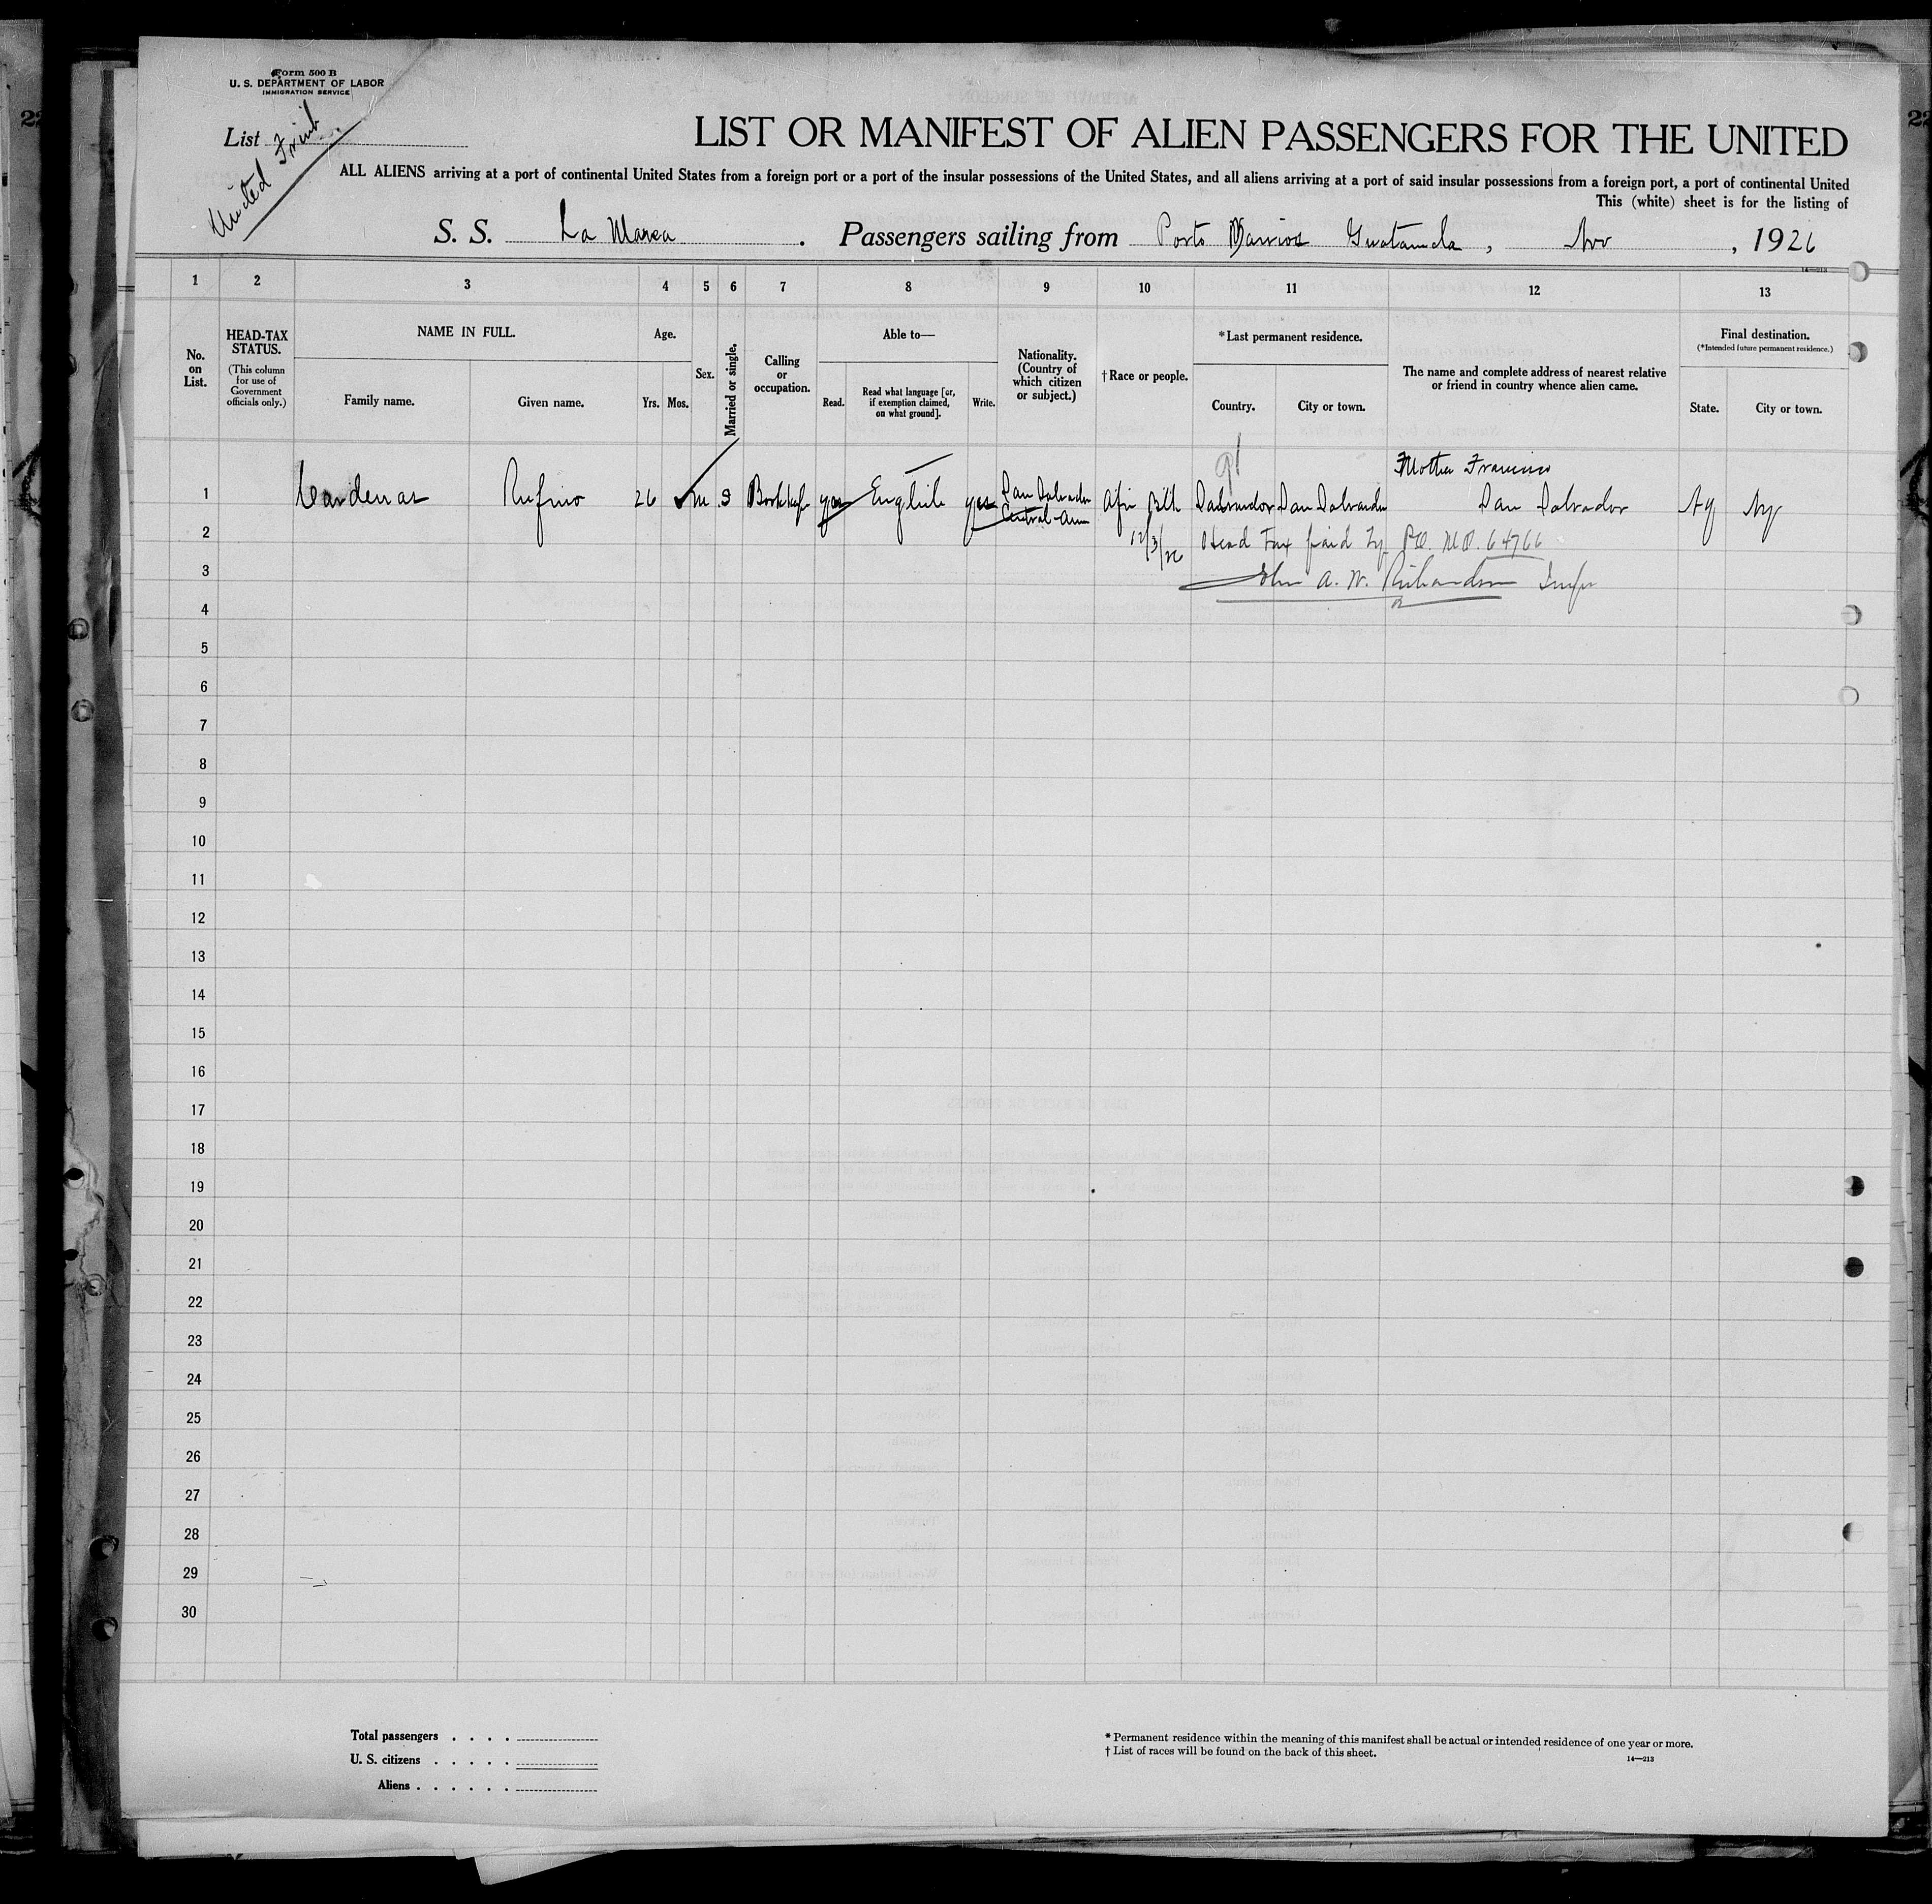 Form 500 B
U. S. DEPARTMENT OF LABOR
IMMIGRATION SERVICE
List
United Fruit
LIST OR MANIFEST OF ALIEN PASSENGERS FOR THE UNITED
ALL ALIENS arriving at a port of continental United States from a foreign port or a port of the insular possessions of the United States, and all aliens arriving at a port of said insular possessions from a foreign port, a port of continental United
This (white) sheet is for the listing of
S. S. La Marea . Passengers sailing from Porto Barrios Guatamela , Nov , 1926
14—213
1 2 3 4 5 6 7 8 9 10 11 12 13
No. on List.
HEAD-TAX STATUS.
(This column for use of Government officials only.)
NAME IN FULL.
Family name. Given name.
Age.
Yrs. Mos.
Sex.
Married or single.
Calling or occupation.
Able to—
Read. Read what language [or, if exemption claimed, on what ground]. Write.
Nationality. (Country of which citizen or subject.)
† Race or people.
*Last permanent residence.
Country. City or town.
The name and complete address of nearest relative or friend in country whence alien came.
Final destination.
(*Intended future permanent residence.)
State. City or town.
Mother Francisco
1 Cardenas Rufino 26 m S Bookkepr yes English yes San Salvador Central Am Afr Blk Salvador San Salvador San Salvador NY NY
2 12/3/26 Head Tax paid by P.O. M.O. 64766
3 John A. W. Richardson Insp
4
5
6
7
8
9
10
11
12
13
14
15
16
17
18
19
20
21
22
23
24
25
26
27
28
29
30
Total passengers . . . .
U. S. citizens . . . . .
Aliens . . . . . .
* Permanent residence within the meaning of this manifest shall be actual or intended residence of one year or more.
† List of races will be found on the back of this sheet.
14—213